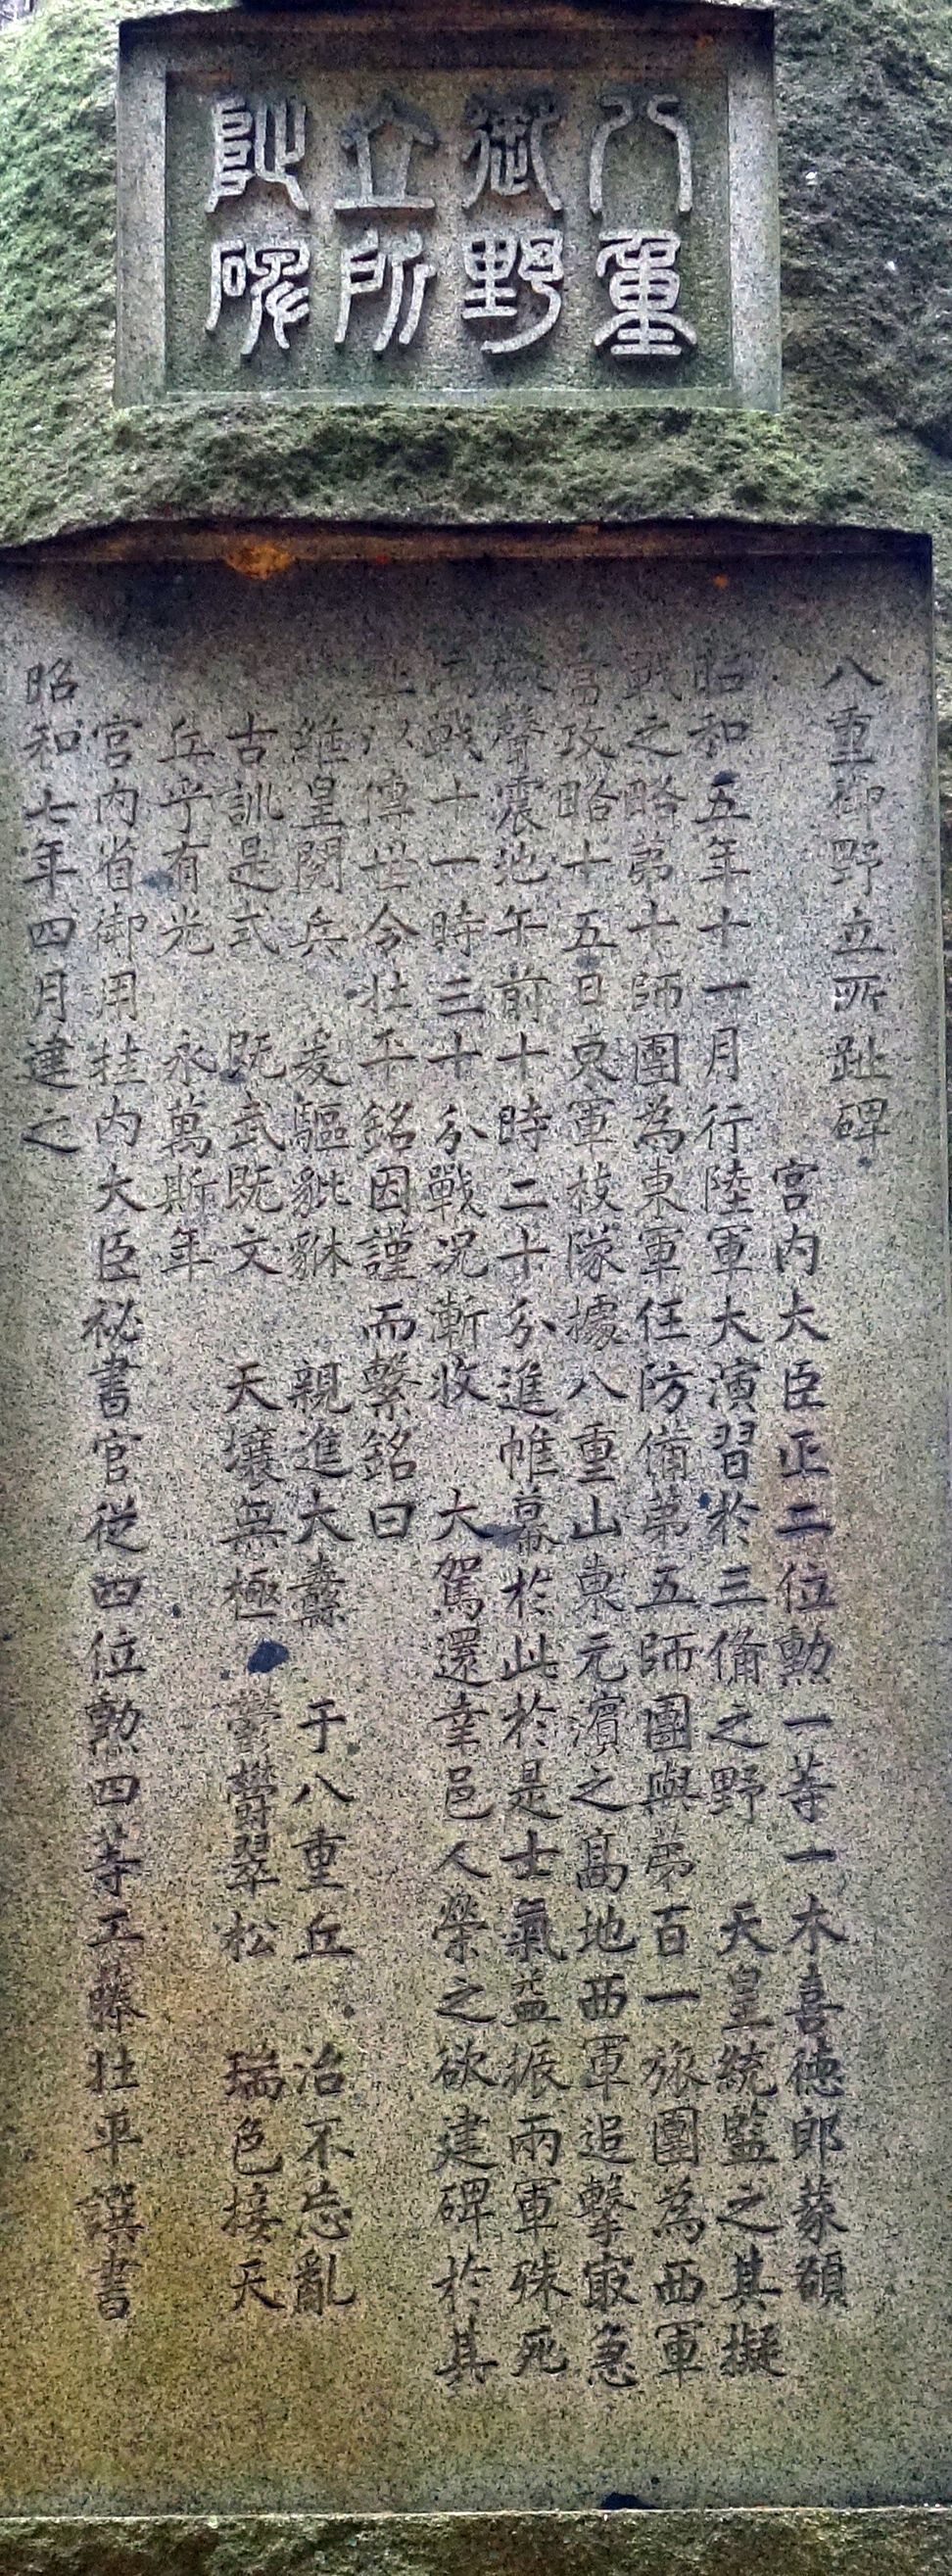 八重
御野
立所
阯碑
八重御野立所趾碑
宮内大臣正二位勲一等一木喜徳郎篆額
昭和五年十一月行陸軍大演習於三備之野 天皇統監之其擬
戦之略第十師團為東軍任防備第五師團與第百一旅團為西軍
攻略十五日東軍枝隊據八重山東元濵之高地西軍追撃最急
聲震地午前十時二十分進帷幕於此於是士氣益振兩軍殊死
戦十一時三十分戰况漸收 大駕還幸邑人榮之欲建碑於其
以傳世今壮平銘因謹而繫銘曰
維皇閲兵 爰驅豼貅 親進大纛 于八重丘 治不忘亂
古訓是式 既武既文 天壤無極 鬱鬱翠松 瑞色接天
丘乎有光 永萬斯年
宮内省御用挂内大臣秘書官従四位勲四等工藤壮平譔書
昭和七年四月建之